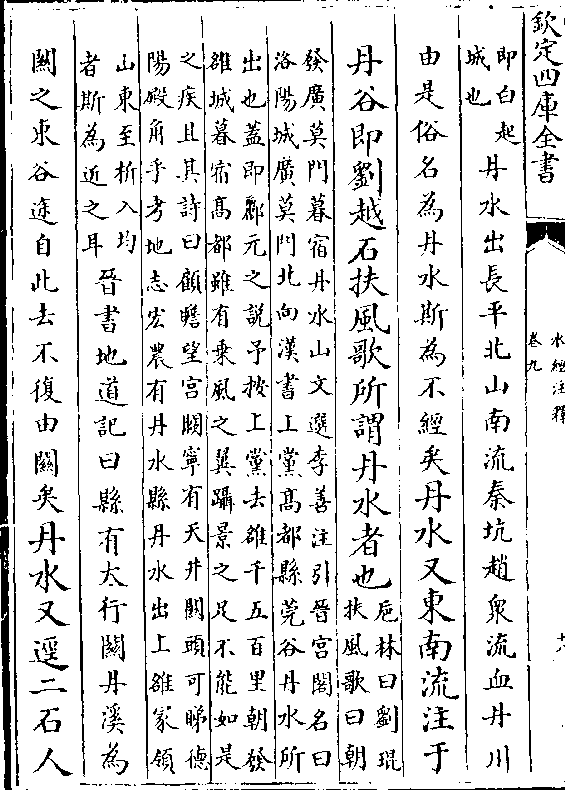 欽定四庫全書
水經注釋
卷九
即白起
城也
丹水出長平北山南流秦坑趙衆流血丹川
由是俗名為丹水斯為不經矣丹水又東南流注于
丹谷即劉越石扶風歌所謂丹水者也
巵林曰劉琨
扶風歌曰朝
發廣莫門暮宿丹水山文選李善注引晉宮閣名曰
洛陽城廣莫門北向漢書上黨髙都縣莞谷丹水所
出也蓋即酈元之說予按上黨去雒千五百里朝發
雒城暮宿髙都雖有乗風之翼躡景之足不能如是
之疾且其詩曰顧瞻望宮闕寧有天井關頭可睇德
陽殿角乎考地志宏農有丹水縣丹水出上雒冢領
山東至析入均
者斯為近之耳
晉書地道記曰縣有太行關丹溪為
關之東谷途自此去不復由關矣丹水又逕二石人